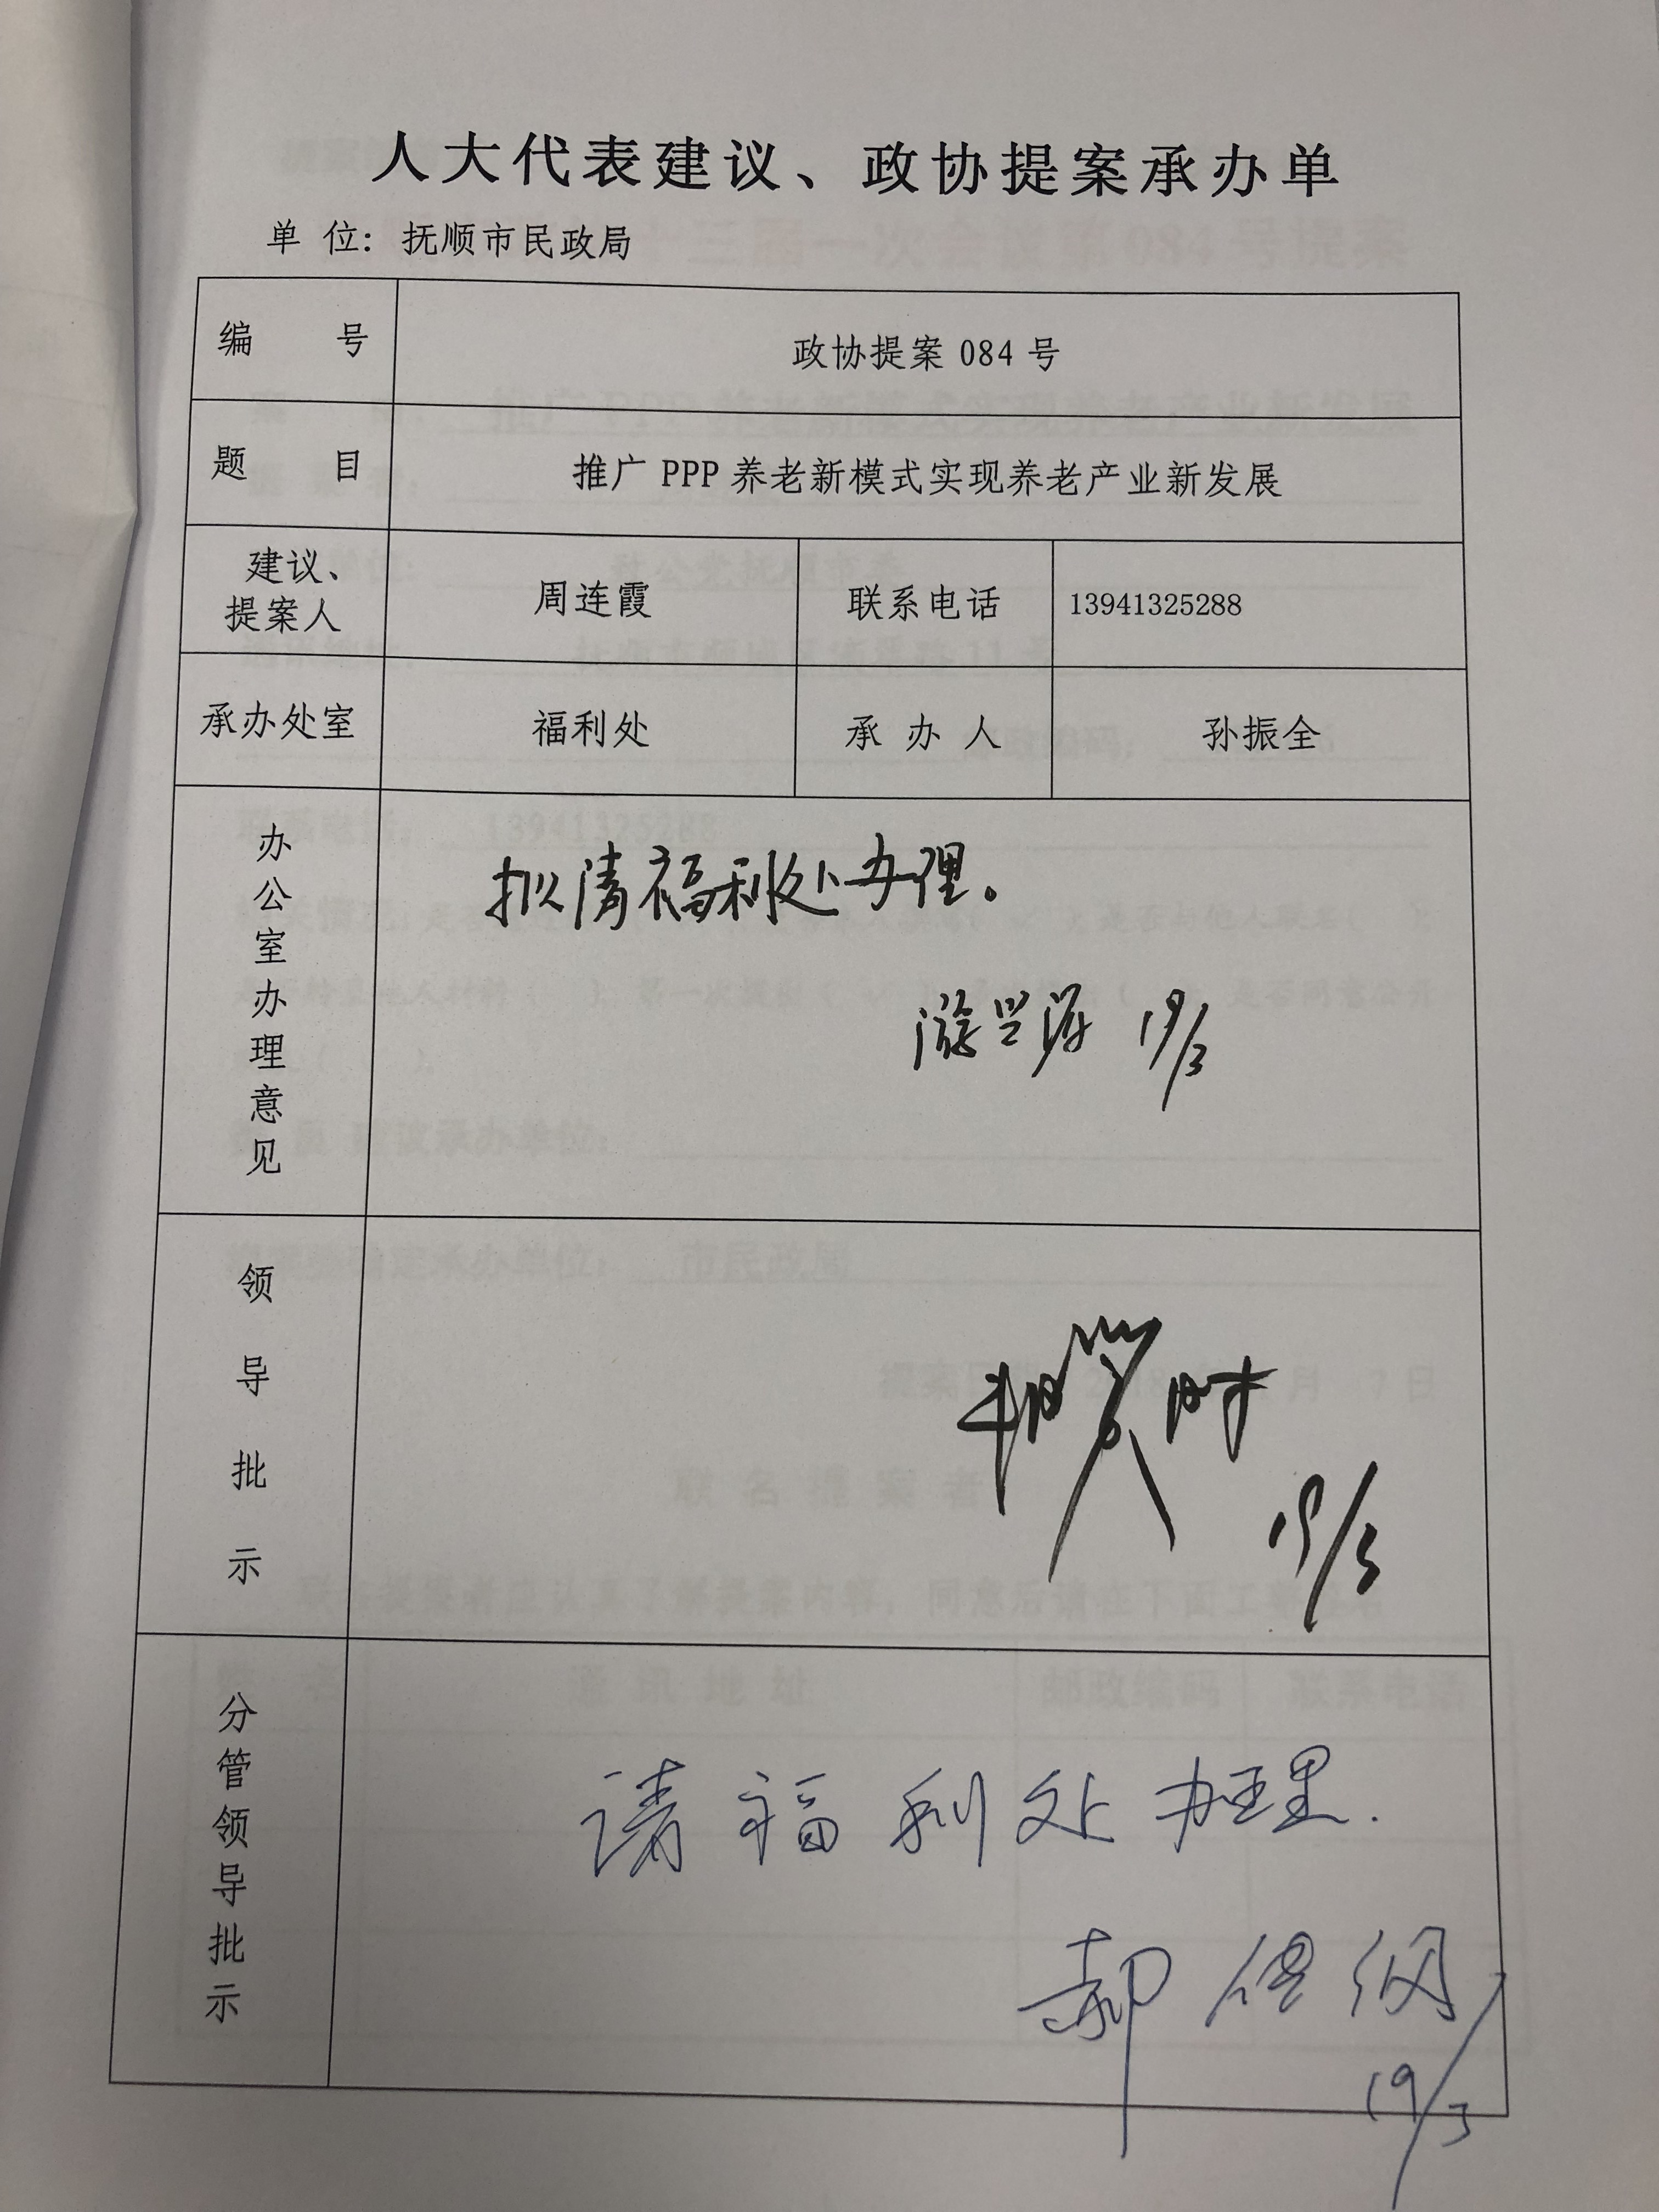 人大代表建议、政协提案承办单
单 位：抚顺市民政局
编 号
政协提案 084 号
题 目
推广 PPP 养老新模式实现养老产业新发展
建议、
提案人
周连霞
联系电话
13941325288
承办处室
福利处
承 办 人
孙振全
办公室办理意见
拟请福利处办理。
19/3
领导批示
19/3
分管领导批示
请福利处办理.
19/3